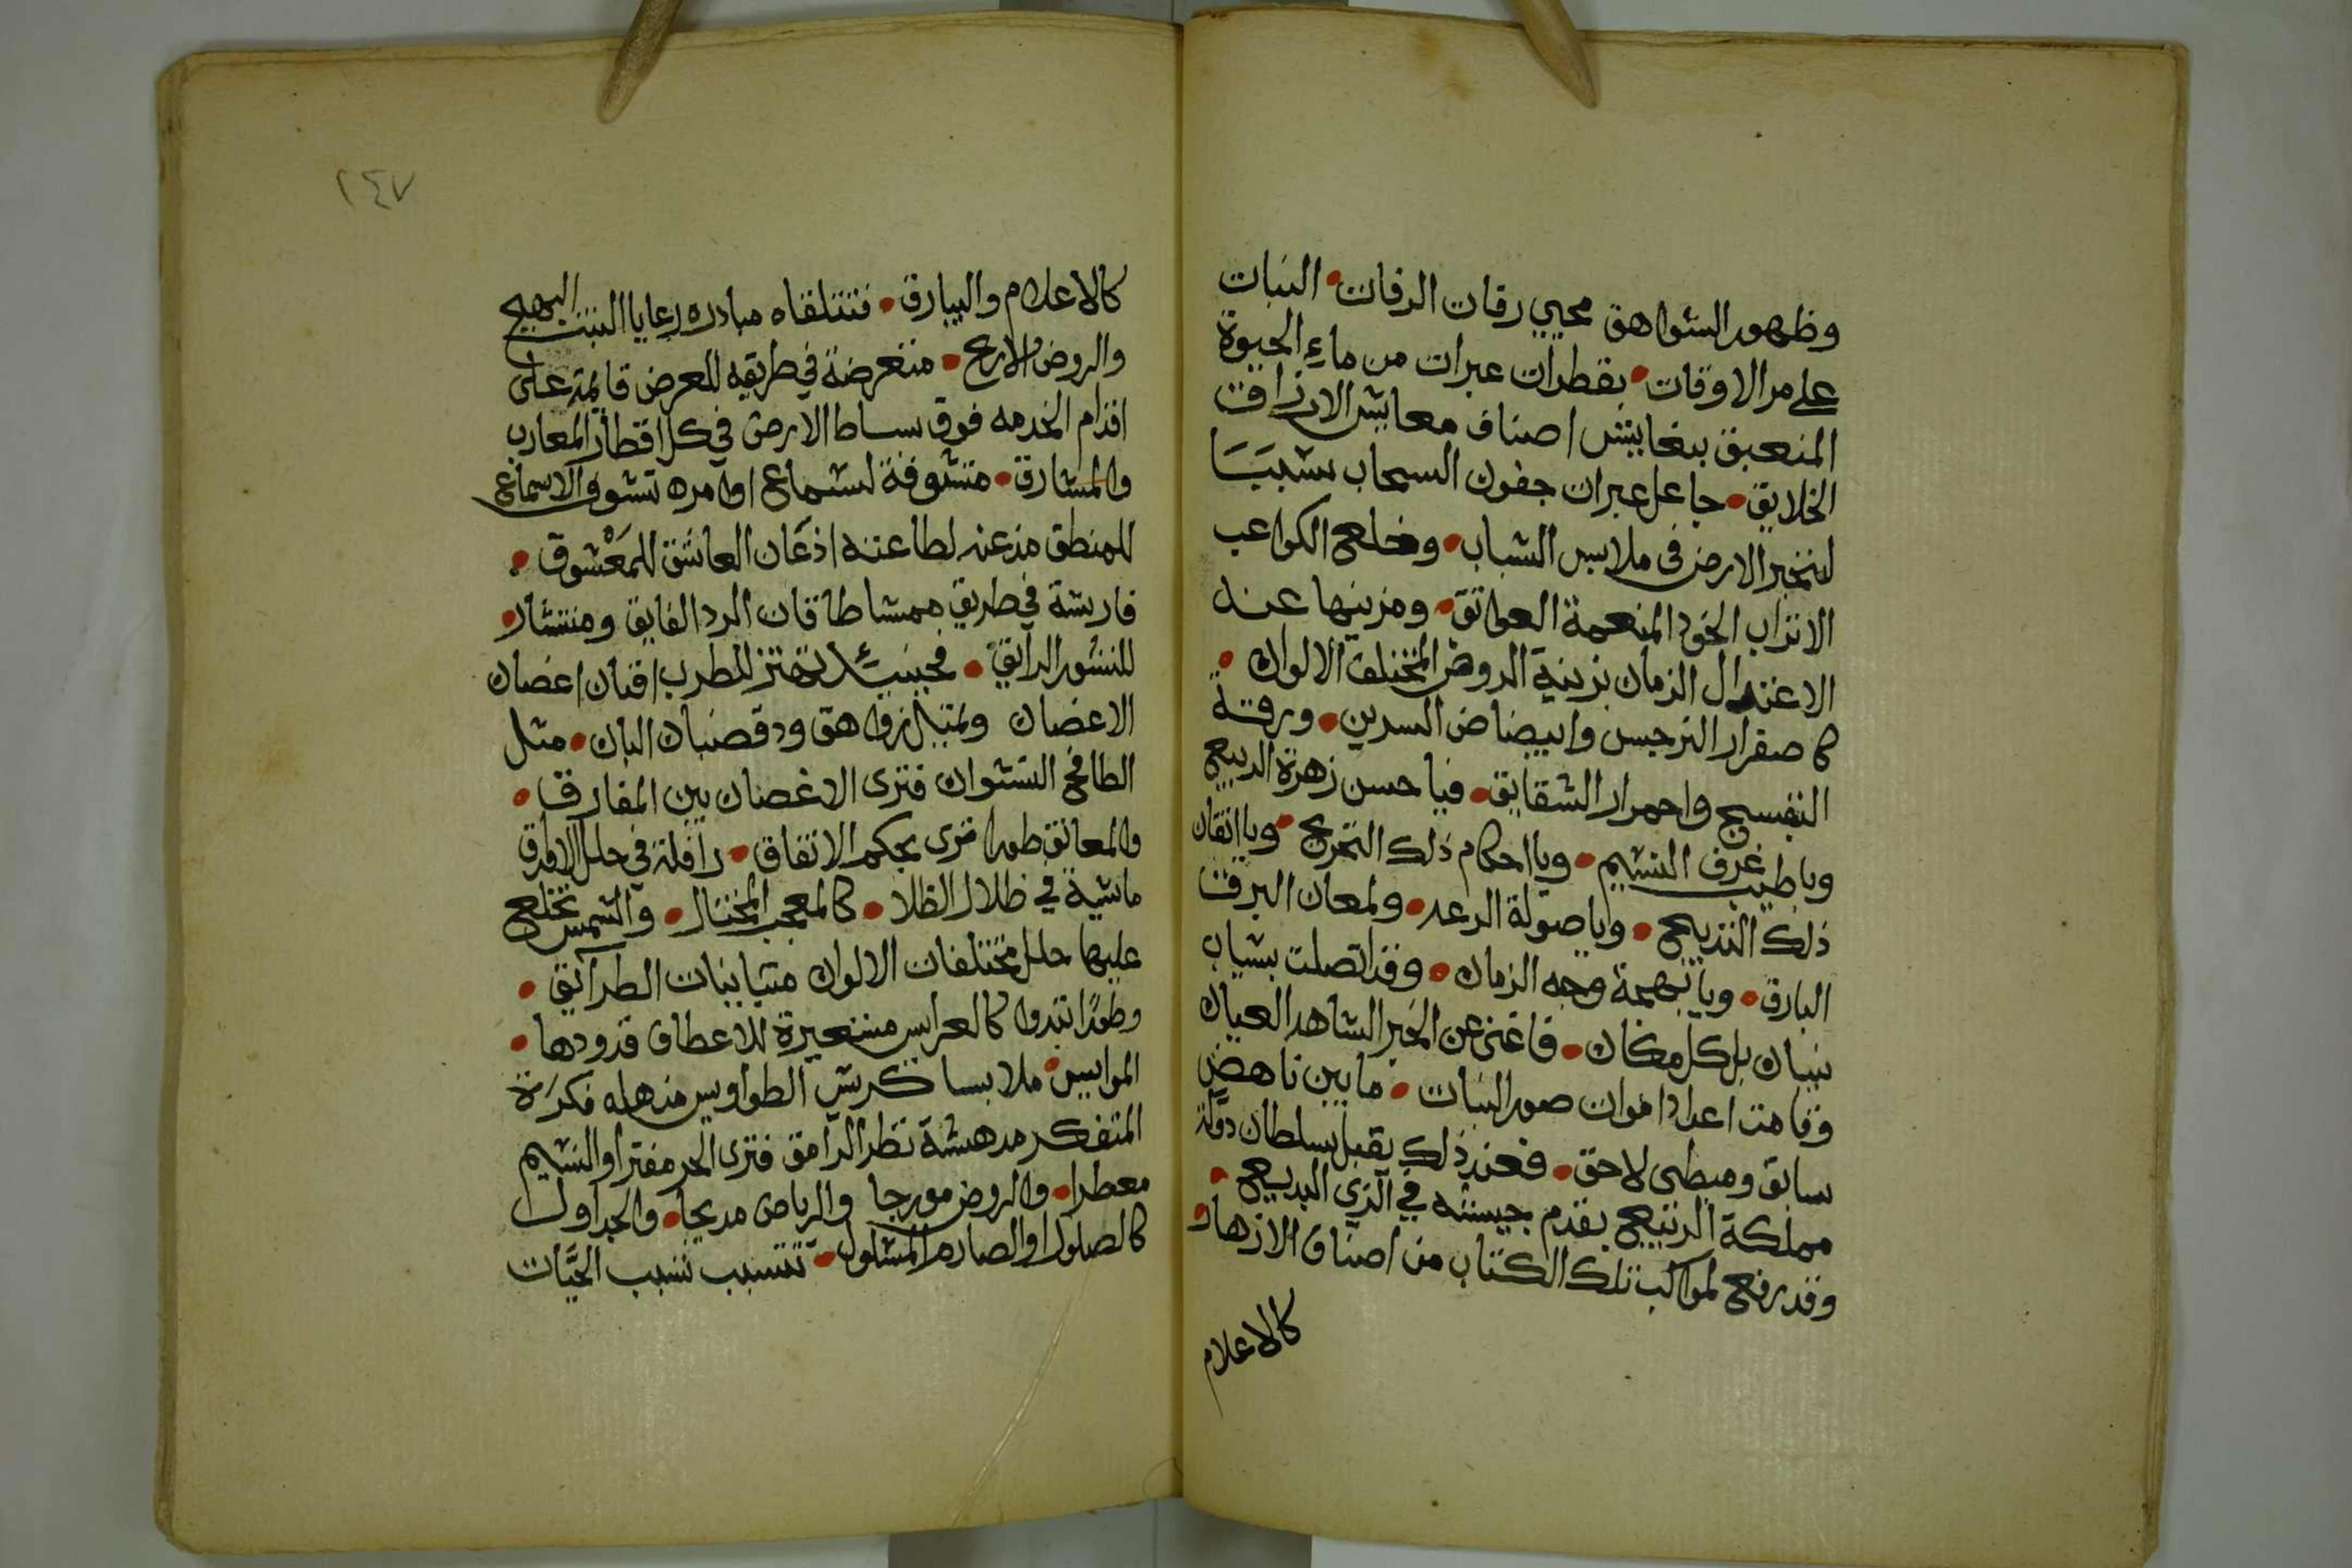 وظهور الشواهق محيي رفات الرفات النبات
على مر الاوقات بقطرات عبرات من ماء الحيوة
المنعبق ببغابيش اصناف معايش الارزاق
الخلايق جاعل عبرات جفون السحاب سببًا
لتبختر الارض في ملابس الشباب وخلع الكواعب
الاتراب الخود المنعمة العواتق ومزينها عند
الاعتدال الزمان بزينة الروض المختلف الالوان
كاصفرار النرجس وابيضاض النسرين وزرقة
البنفسج واحمرار الشقايق فيا حسن زهرة الربيع
ويا طيب عرف النسيم ويا احكام ذلك التخريج ويا اتقان
ذلك التدبيج ويا صولة الرعد ولمعان البرق
البارق ويا بهجة وجه الزمان وقد اتصلت بشباب
نيسان بل كل مكان فاغنى عن الخبر الشاهد العيان
وقامت اعداد اموات صور النبات ما بين ناهض
سابق ومبطى لاحق فعند ذلك يقبل سلطان دولة
مملكة الربيع يقدم بجيشه في الزي البديع
وقد رفع لمواكب تلك الكتاب من اصناف الازهار
كالاعلام
٢٤٧
كالاعلام والبيارق فتتلقاه مبادره رعايا النبت البهيج
والروض الاريج متعرضة في طريقه للعرض قايمة على
اقدام الخدمه فوق بساط الارض في كل اقطار المغارب
والمشارق متشوفة لسماع اوامره تشوف الاسماع
للمنطق مذعنه لطاعته اذعان العاشق للمَعْشوق
فاريشة في طريق ممشا طاقات الرد الفايق ومنثار
للنشور الرايق فحينئذ تهتز للطرب افنان اغصان
الاغصان وتميل زواهق ود قضبان البان مثل
الطافح النشوان فترى الاغصان بين المفارق
والمعانق طورا ترى بحكم الاتفاق رافلة في حلل الاوراق
ماشية في ظلال الظلا كالمعجب المختال والشمس تخلع
عليها حلل مختلفات الالوان متباينات الطرايق
وطورًا تبدوا كالعرايس مستعيرة للاعطاف قدودها
الموايس ملابسا كريش الطواويس مذهله فكرة
المتفكر مدهشة نظر الرامق فترى الحر مفترا والنسيم
معطرا والروض مورجا والرياض مدبجا والجداول
كالصلول او الصارم المسلول تنسيب تسيب الحيَّات